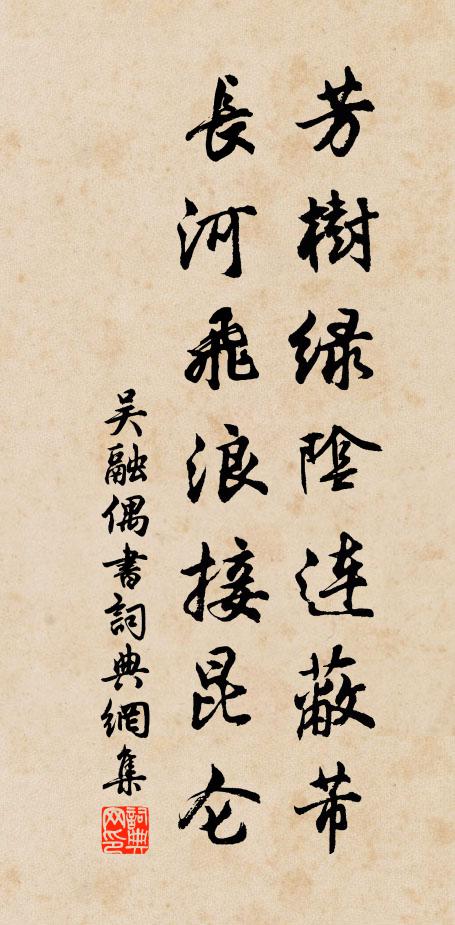 芳樹绿陰連蔽芾
長河飛浪接昆仑
吴融偶書詞典網集
詞典网印